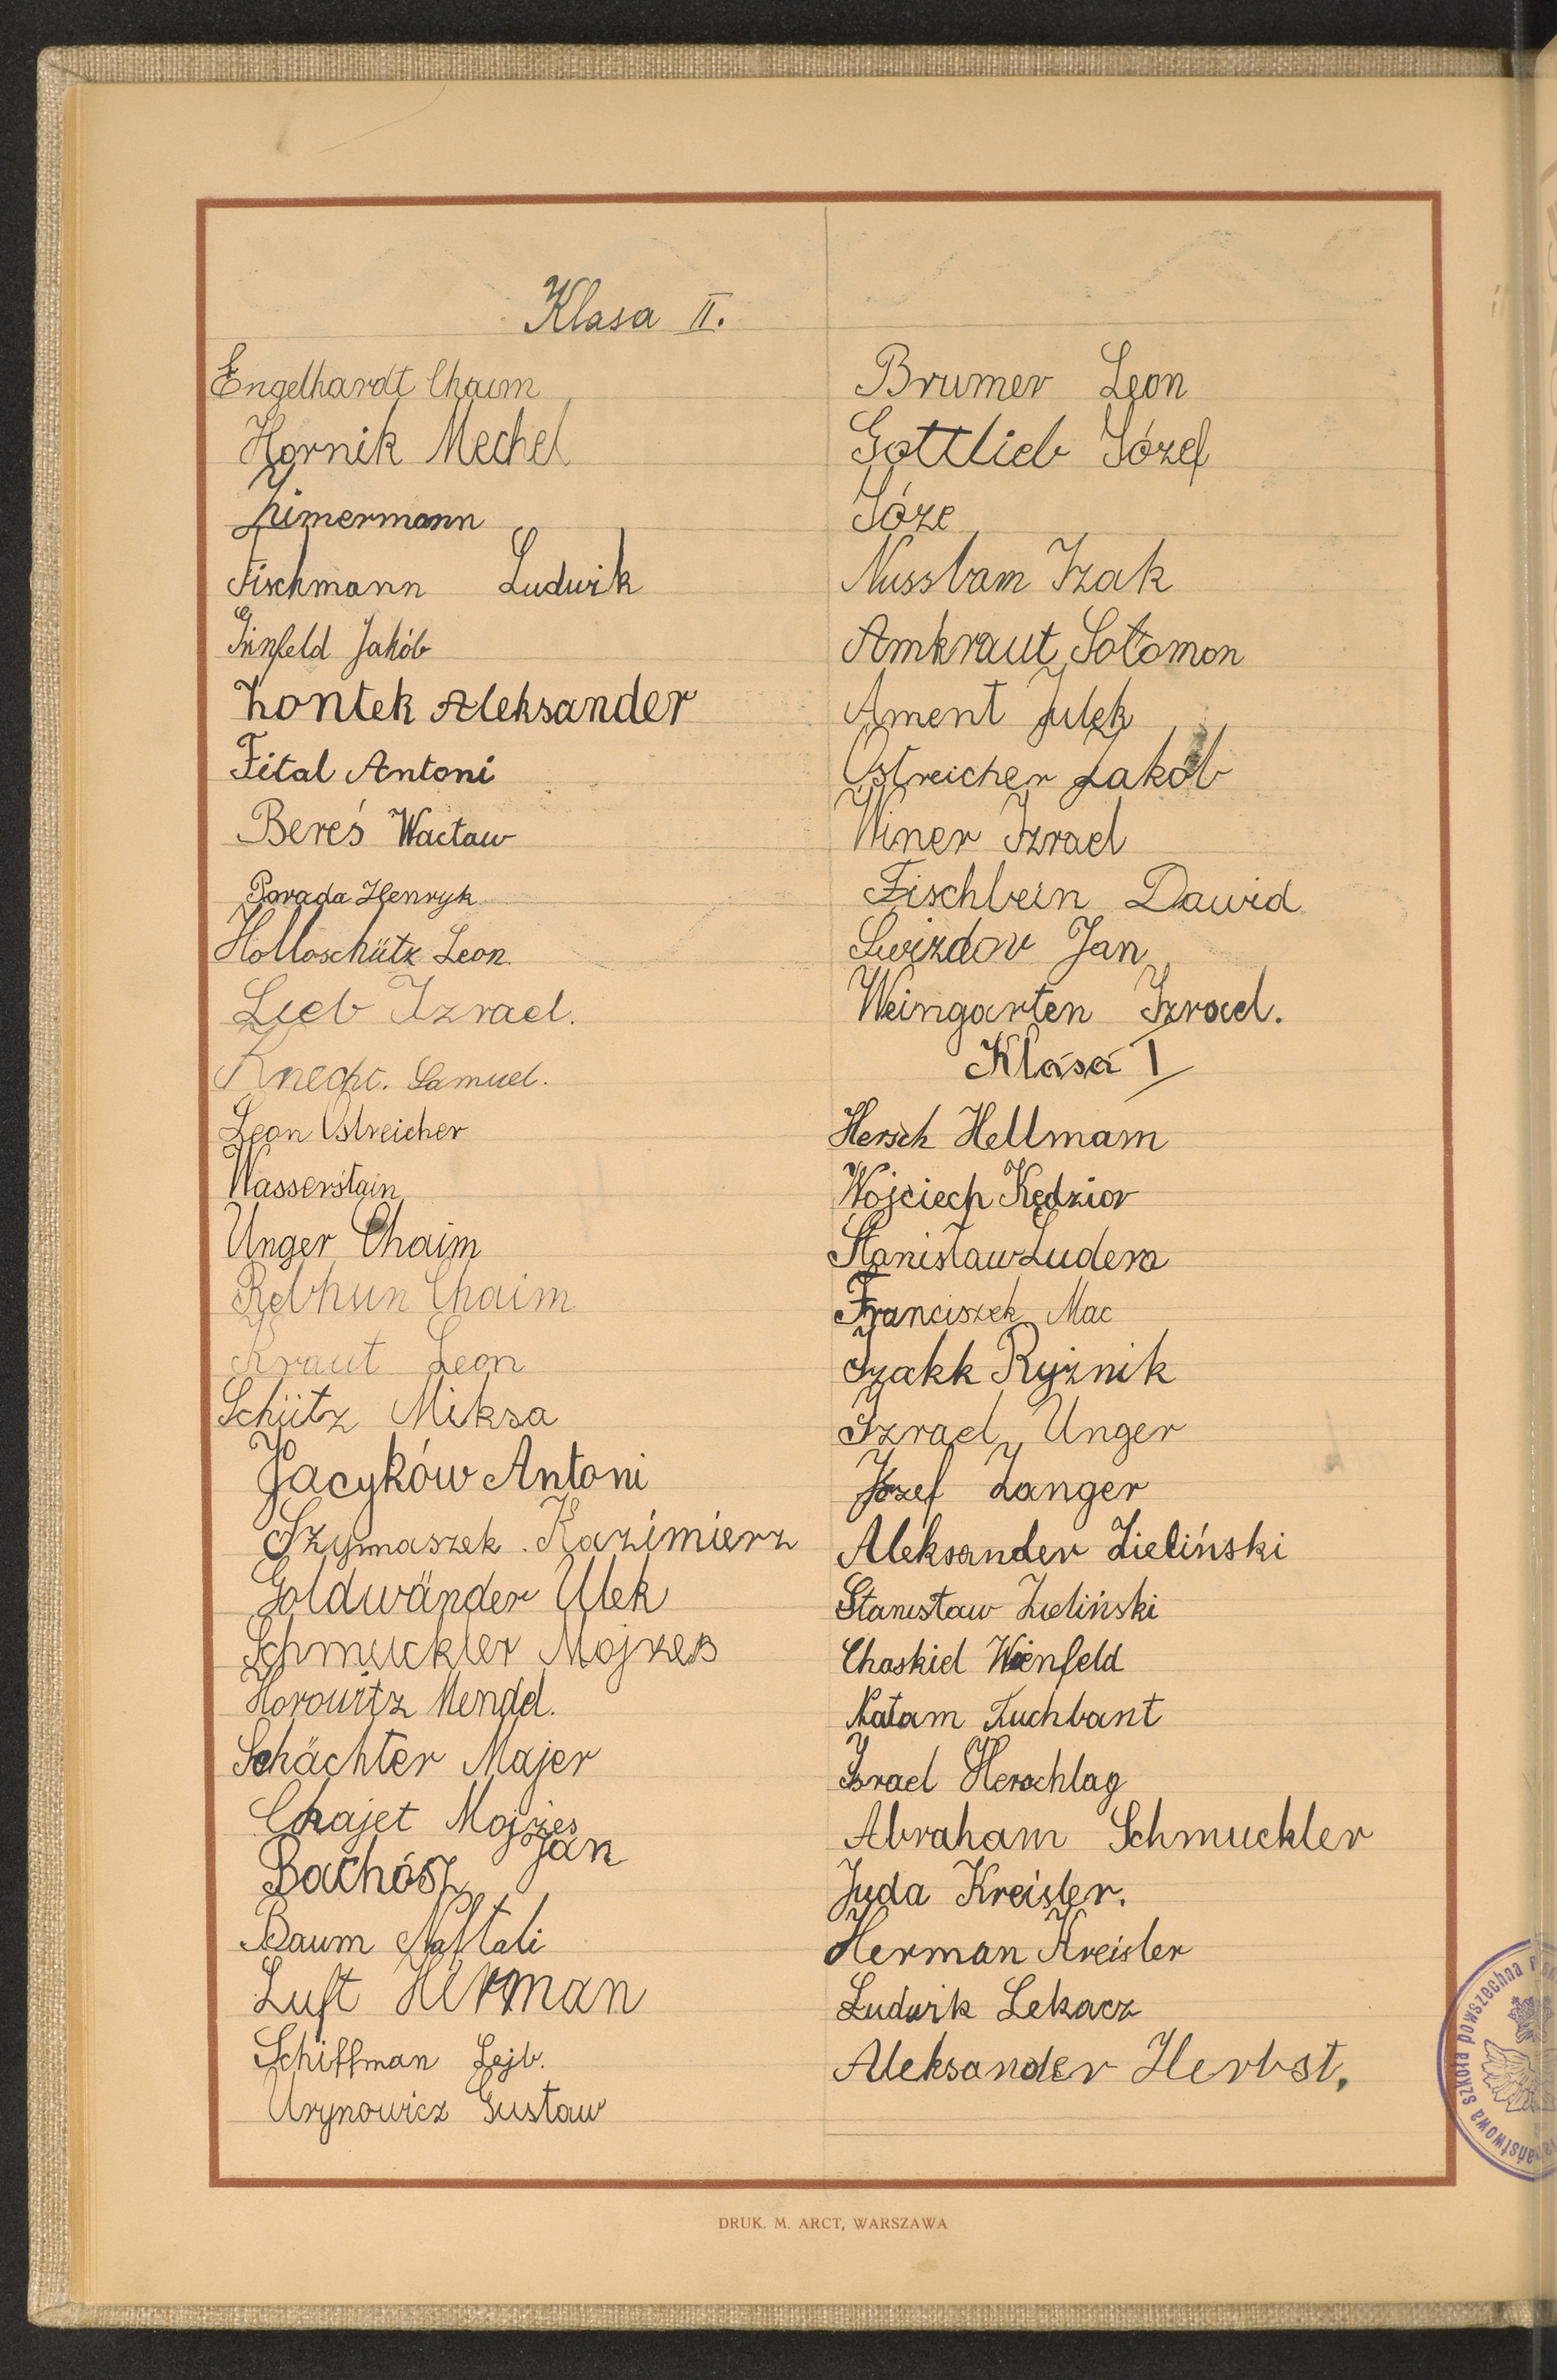 Klasa II.
Engelhardt Chaim
Hornik Mechel
Zimermann
Fischmann Ludwik
Grinfeld Jakób
Lontek Aleksander
Fital Antoni
Bereś Wacław
Porada Henryk
Holloschütz Leon.
Lieb Izrael.
Knecht. Samuel.
Leon Ostreicher
Wasserstain
Unger Chaim
Rebhun Chaim
Kraut Leon
Schütz Miksa
Jacyków Antoni
Szymaszek. Kazimierz
Goldwänder Ulek
Schmuckler Mojzes
Horowitz Mendel.
Schächter Majer
Chajet Mojżes
Bachósz Jan
Baum Naftali
Luft Herman
Schiffman Lejb.
Urynowicz Gustaw
Brumer Leon
Gottlieb Józef
Józe
Nussbam Izak
Amkraut Sołomon
Ament Julek
Ostreicher Jakób
Winer Izrael
Fischbein Dawid
Swizdor Jan
Weingarten Izrael.
Klasa I
Hersch Hellmam
Wojciech Kędzior
Stanisław Ludera
Franciszek Mac
Izakk Ryżnik
Izrael Unger
Józef Zanger
Aleksander Zieliński
Stanisław Zieliński
Chaskiel Wienfeld
Natam Zuchbant
Israel Herschlag
Abraham Schmuckler
Juda Kreisler.
Herman Kreisler
Ludwik Lekacz
Aleksander Herbst.
szkoła powszechna
DRUK. M. ARCT, WARSZAWA